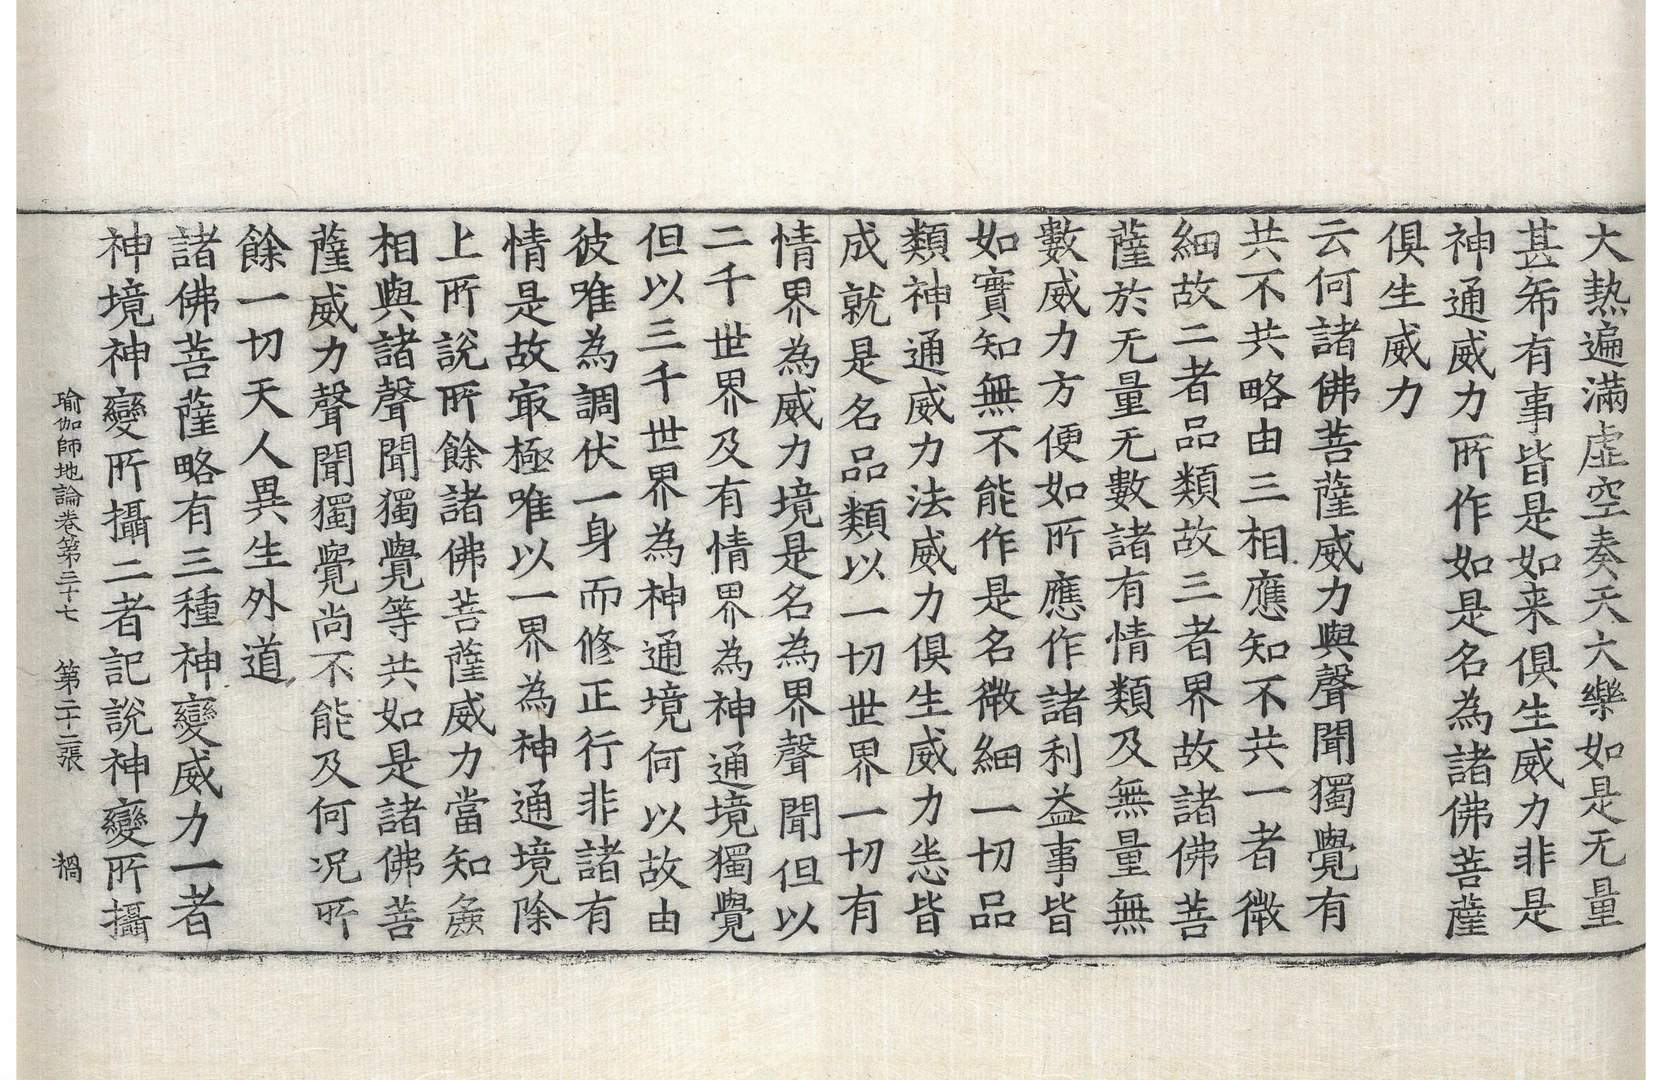 大熱遍滿虛空奏天大樂如是无量
甚希有事皆是如来俱生威力非是
神通威力所作如是名為諸佛菩薩
俱生威力
云何諸佛菩薩威力與聲聞獨覺有
共不共略由三相應知不共一者微
細故二者品類故三者界故諸佛菩
薩於无量无數諸有情類及無量無
數威力方便如所應作諸利益事皆
如實知無不能作是名微細一切品
類神通威力法威力俱生威力悉皆
成就是名品類以一切世界一切有
情界為威力境是名為界聲聞但以
二千世界及有情界為神通境獨覺
但以三千世界為神通境何以故由
彼唯為調伏一身而修正行非諸有
情是故㝡極唯以一界為神通境除
上所說所餘諸佛菩薩威力當知麁
相與諸聲聞獨覺等共如是諸佛菩
薩威力聲聞獨覺尚不能及何況所
餘一切天人異生外道
諸佛菩薩略有三種神變威力一者
神境神變所攝二者記說神變所攝
瑜伽師地論卷第三十七 第二十二張 禍